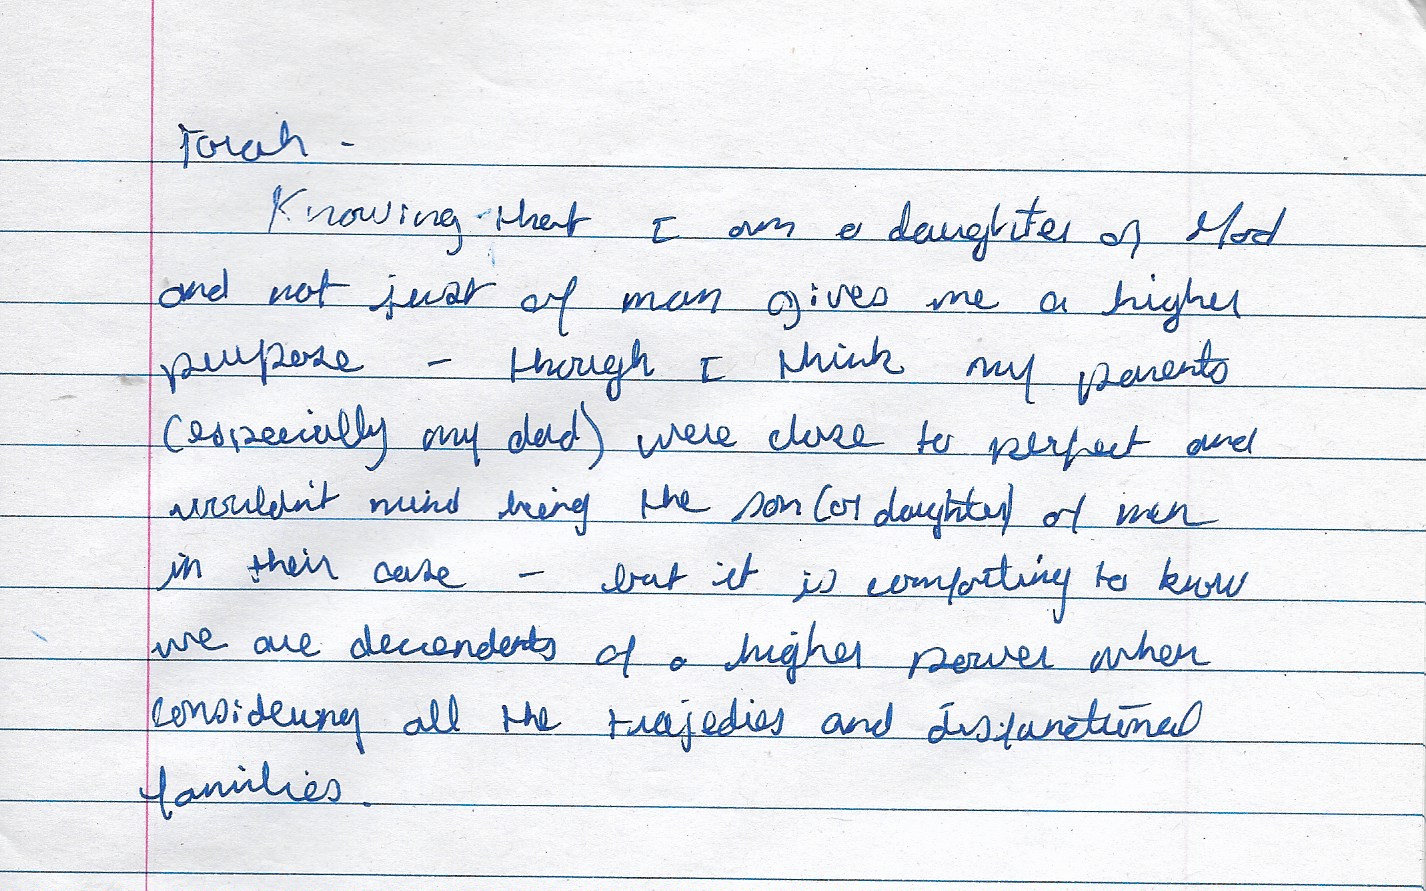 Torah -
Knowing that I am a daughter of God
and not just of man gives me a higher
purpose - though I think my parents
(especially my dad) were close to perfect and
wouldn't mind being the son (or daughter) of men
in their case - but it is comforting to know
we are decendents of a higher power when
considering all the trajedies and disfunctional
families.